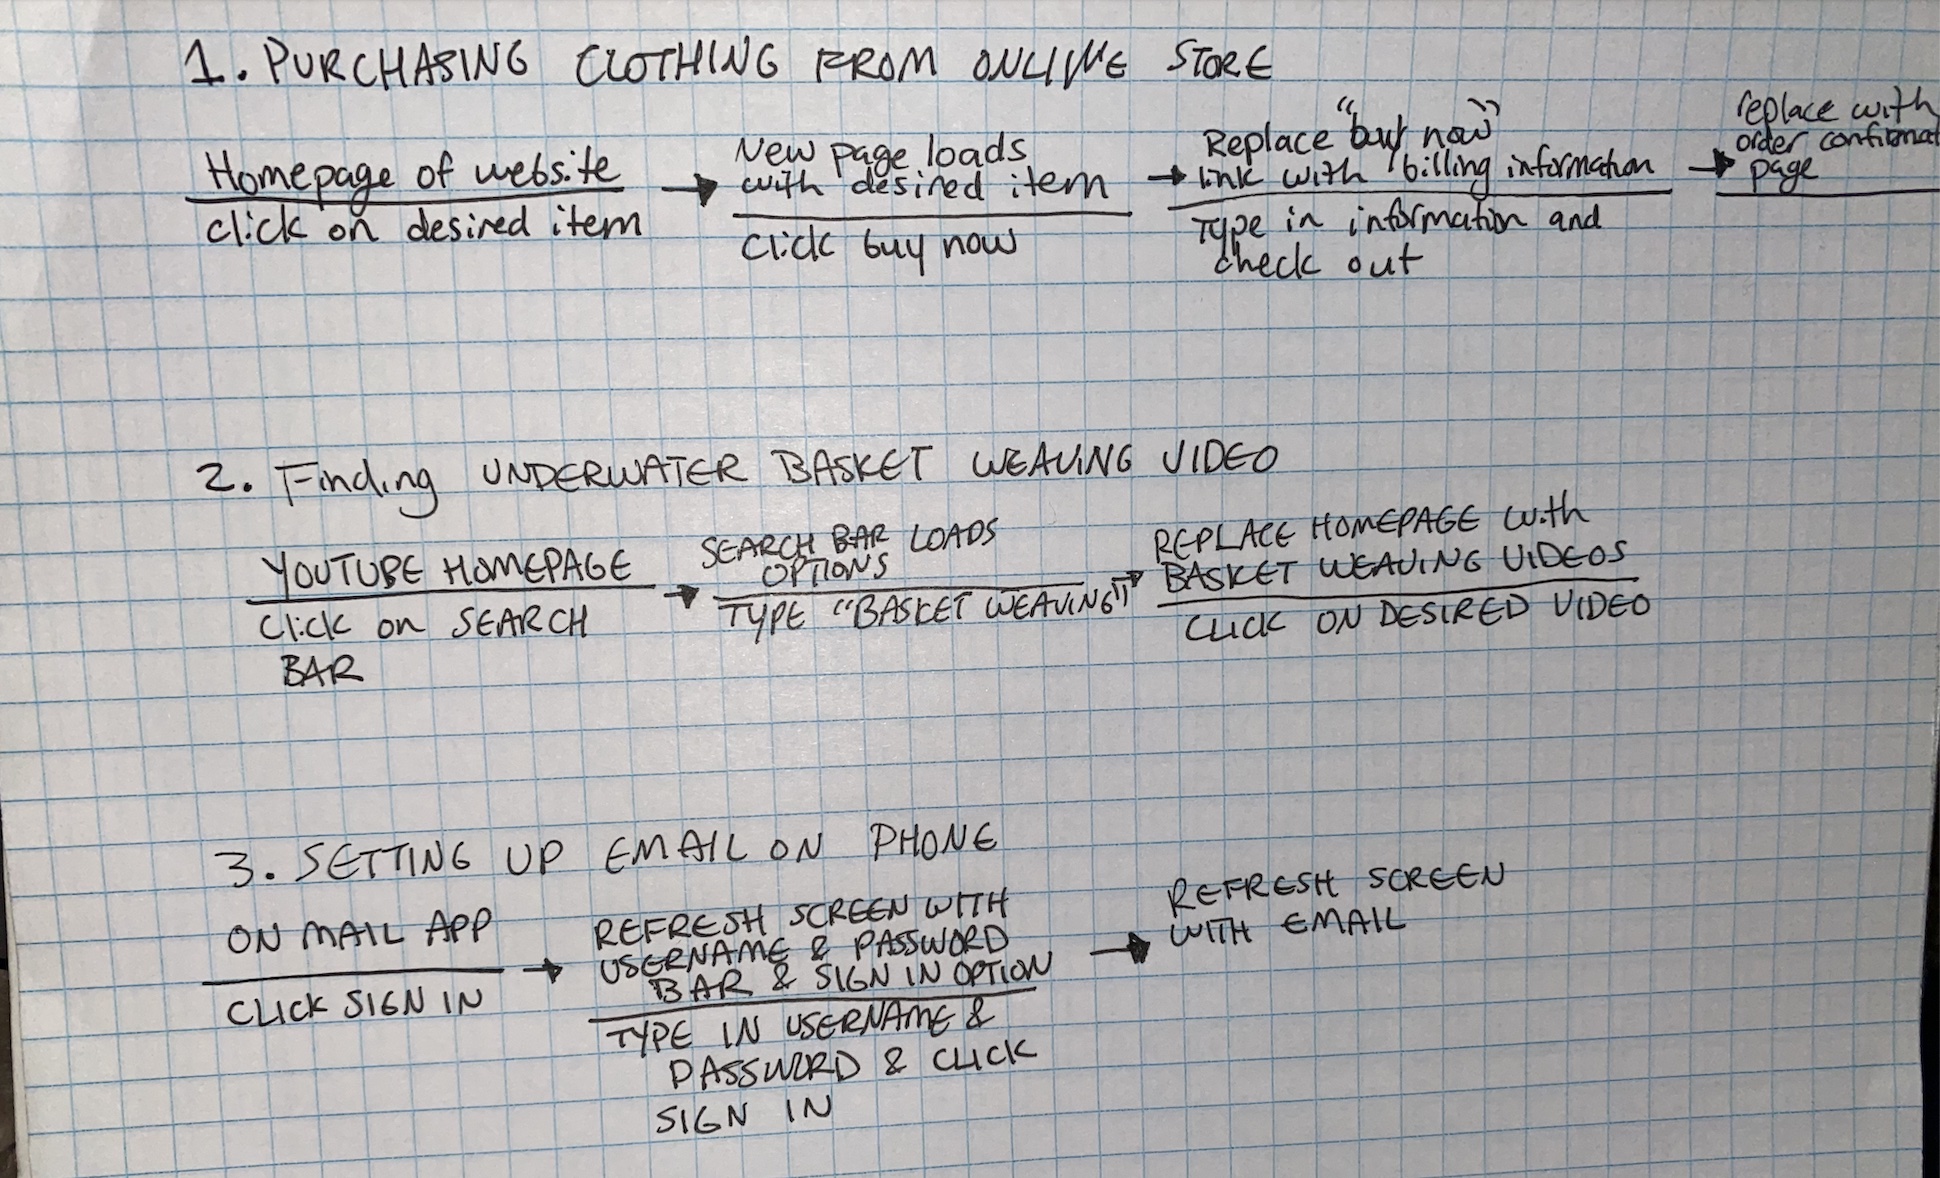 1. PURCHASING CLOTHING FROM ONLINE STORE
Homepage of website
click on desired item
New page loads
with desired item
Click buy now
Replace "buy now"
link with billing information
Type in information and
check out
replace with
order confirmat
page
2. Finding UNDERWATER BASKET WEAVING VIDEO
YOUTUBE HOMEPAGE
Click on SEARCH
BAR
SEARCH BAR LOADS
OPTIONS
TYPE "BASKET WEAVING"
REPLACE HOMEPAGE with
BASKET WEAVING VIDEOS
CLICK ON DESIRED VIDEO
3. SETTING UP EMAIL ON PHONE
ON MAIL APP
CLICK SIGN IN
REFRESH SCREEN WITH
USERNAME & PASSWORD
BAR & SIGN IN OPTION
TYPE IN USERNAME &
PASSWORD & CLICK
SIGN IN
REFRESH SCREEN
WITH EMAIL